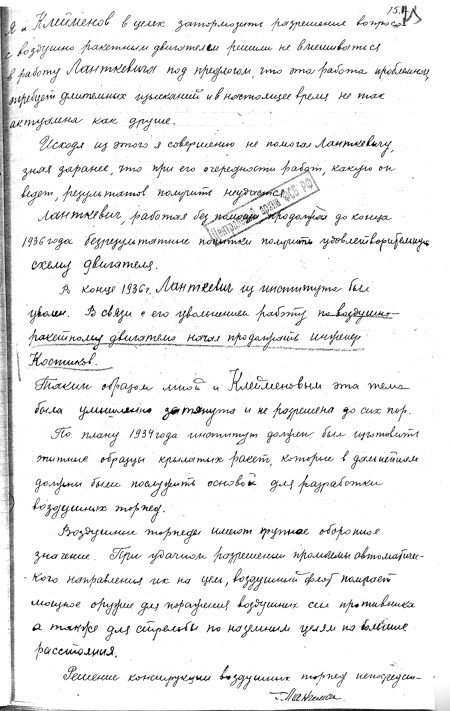 15.
Я и Клейменов в целях затормозить разрешение вопроса
с воздушно ракетным двигателем решили не вмешиваться
в работу Ланткевича под предлогом, что эта работа проблемная,
требует длительных изысканий и в настоящее время не так
актуальна как другие.
Исходя из этого я совершенно не помогал Ланткевичу,
зная заранее, что при его очередности работ, какую он
ведет, результатов получить неудастся.
Центральный архив ФСБ РФ
Ланткевич, работая без помощи продолжал до конца
1936 года безрезультатные попытки получить удовлетворительную
схему двигателя.
В конце 1936 г. Ланткевич из института был
уволен. В связи с его увольнением работу по воздушно-
ракетному двигателю начал продолжать инженер
Костиков.
Таким образом мной и Клейменовым эта тема
была умышленно затянута и не разрешена до сих пор.
По плану 1937 года институт должен был изготовить
опытные образцы крылатых ракет, которые в дальнейшем
должны были послужить основой для разработки
воздушных торпед.
Воздушные торпеды имеют крупное оборонное
значение. При удачном разрешении проблемы автоматиче-
ского направления их на цели, воздушный флот получает
мощное оружие для поражения воздушных сил противника
а также для стрельбы по наземным целям на большие
расстояния.
Решение конструкции воздушных торпед непосредст-